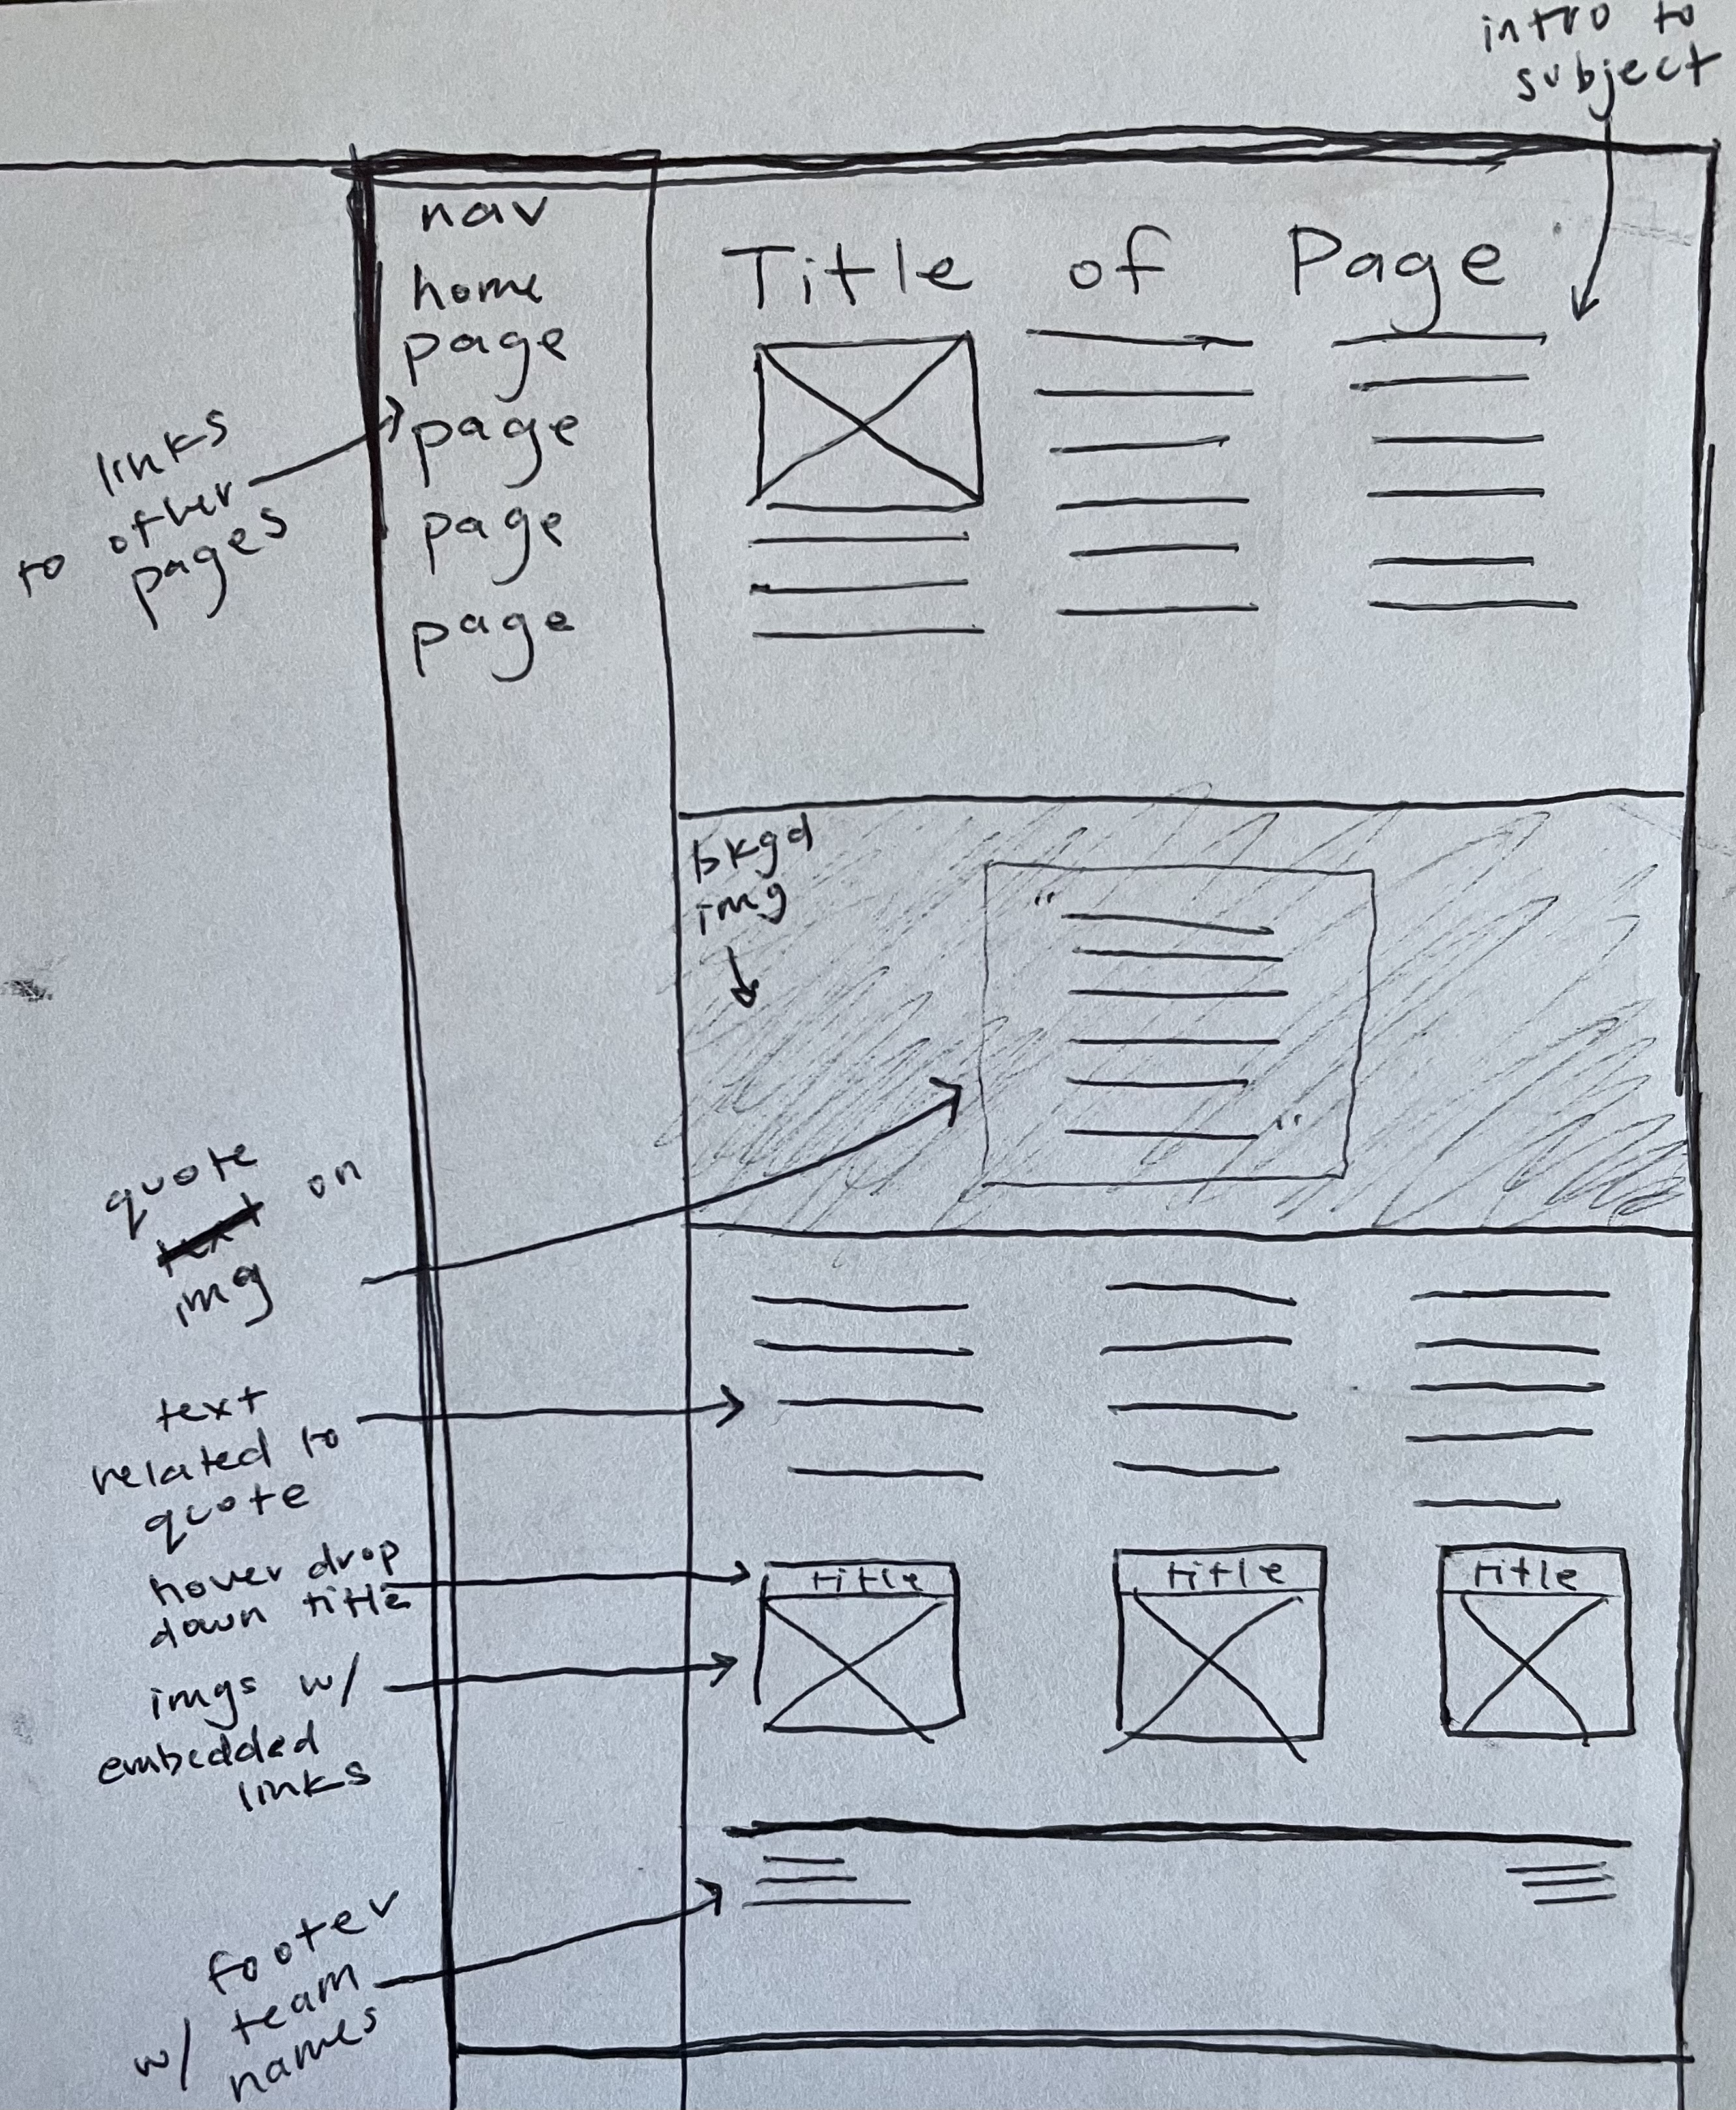 intro to
subject
nav
home
page
page
page
page
Title of Page
links
to other
pages
bkgd
img
"
"
quote on
img
text
related to
quote
hover drop
down title
title
title
title
imgs w/
embedded
links
footer
w/ team
names